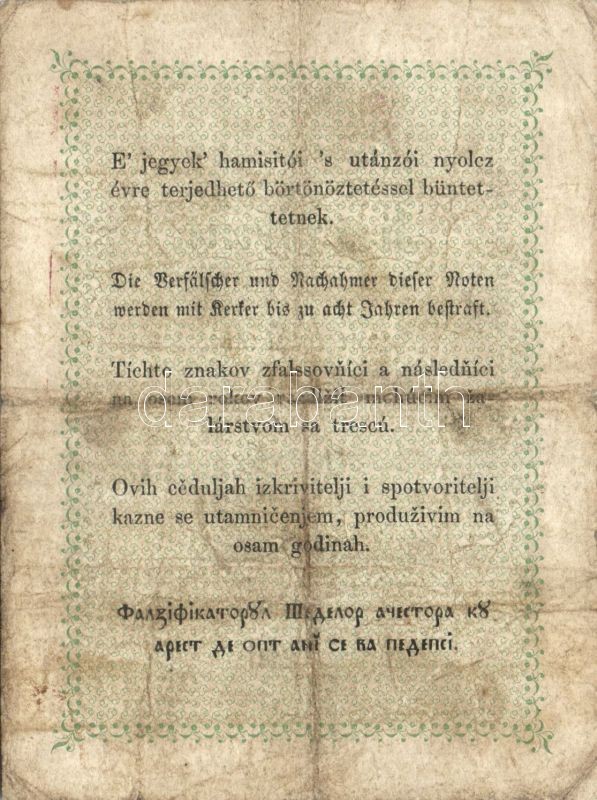 E' jegyek' hamisitói 's utánzói nyolcz
évre terjedhető börtönöztetéssel büntet-
tetnek.
Die Verfälscher und Nachahmer dieser Noten
werden mit Kerker bis zu acht Jahren bestraft.
Tíchto znakov zfalssovňíci a následňíci
na osem rokov
lárstvom sa trescú.
Ovih cěduljah izkrivitelji i spotvoritelji
kazne se utamničenjem, produživim na
osam godinah.
Фалзіфікаторꙋл Шеделор ачестора кꙋ
арест де опт анї се ва педепсі.
databanth